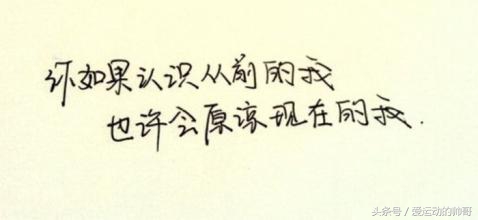 你如果认识从前的我
也许会原谅现在的我.
头条号/爱运动的帅哥